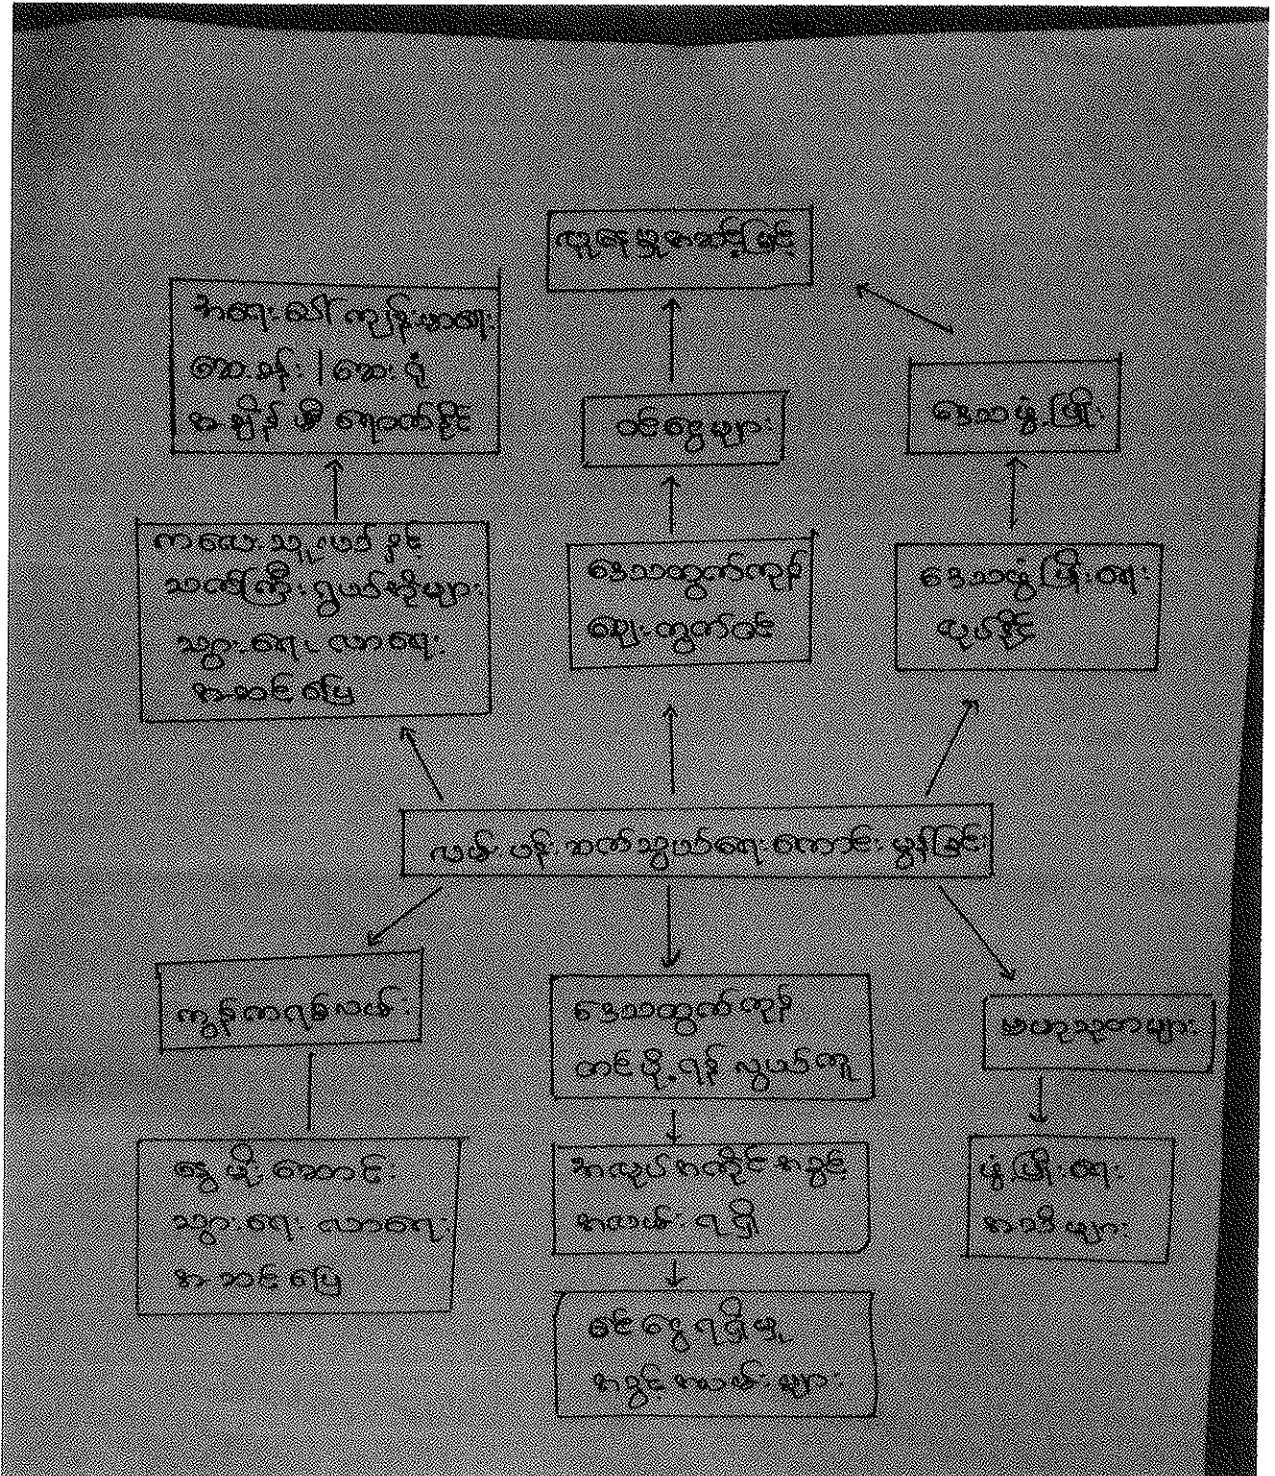 လူနေမှုအဆင့်မြင့်
အရေးပေါ် ကျန်းမာရေး
ဆေးခန်း / ဆေးရုံ
အချိန်မီ ရောက်နိုင်
ဝင်ငွေများ
ဒေသဖွံ့ဖြိုး
ကလေးသူငယ်နှင့်
သက်ကြီးရွယ်အိုများ
သွားရေးလာရေး
အဆင်ပြေ
ဒေသထွက်ကုန်
ဈေးကွက်ဝင်
ဒေသဖွံ့ဖြိုးရေး
လုပ်နိုင်
လမ်းပန်းဆက်သွယ်ရေးကောင်းမွန်ခြင်း
ကွန်ကရစ်လမ်း
ဒေသထွက်ကုန်
တင်ပို့ရန် လွယ်ကူ
ဗဟုသုတများ
နွေ မိုး ဆောင်း
သွားရေး လာရေး
အဆင်ပြေ
အလုပ်အကိုင်အခွင့်
အလမ်းရရှိ
ဖွံ့ဖြိုးရေး
ဝင်ငွေရရှိမှု
အခွင့်အလမ်းများ